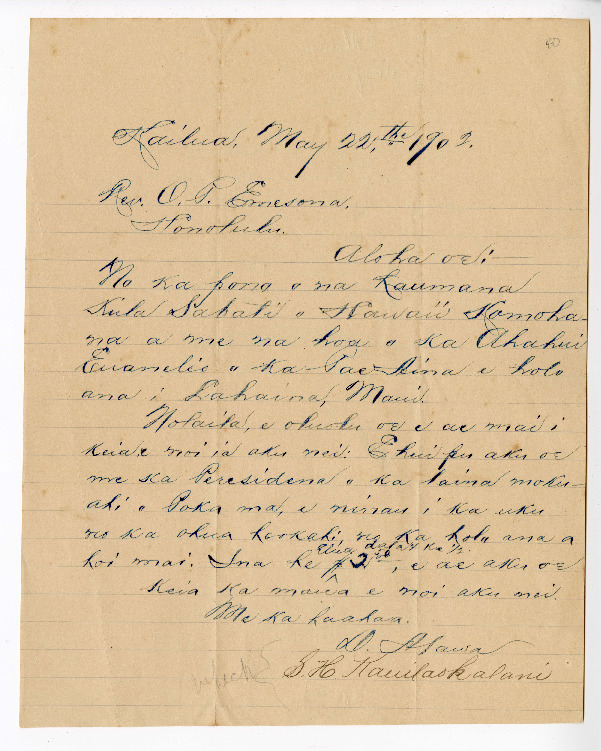 Kailua, May 22,th 1902.
Rev. O. P. Emesona,
Honolulu.
Aloha oe:
No ka pono o na Laumana
Kula Sabati o Hawaii Komoha-
na a me na hoa o ka Ahahui
Euanelio o ka Pae-Aina e holo
ana i Lahaina, Maui.
Nolaila, e oluolu oe e ae mai i
keia e noi ia aku nei: E hui pu aku oe
me ka Peresidena o ka laina moku-
ahi o Poka ma, e ninau i ka uku
no ka ohua hookahi, no ka holo ana a
hoi mai. Ina he Elua dala a me ka ½
$2, e ae aku oe
keia ka maua e noi aku nei.
Me ka haahaa.
D. Alawa
S. H. Kauilaokalani